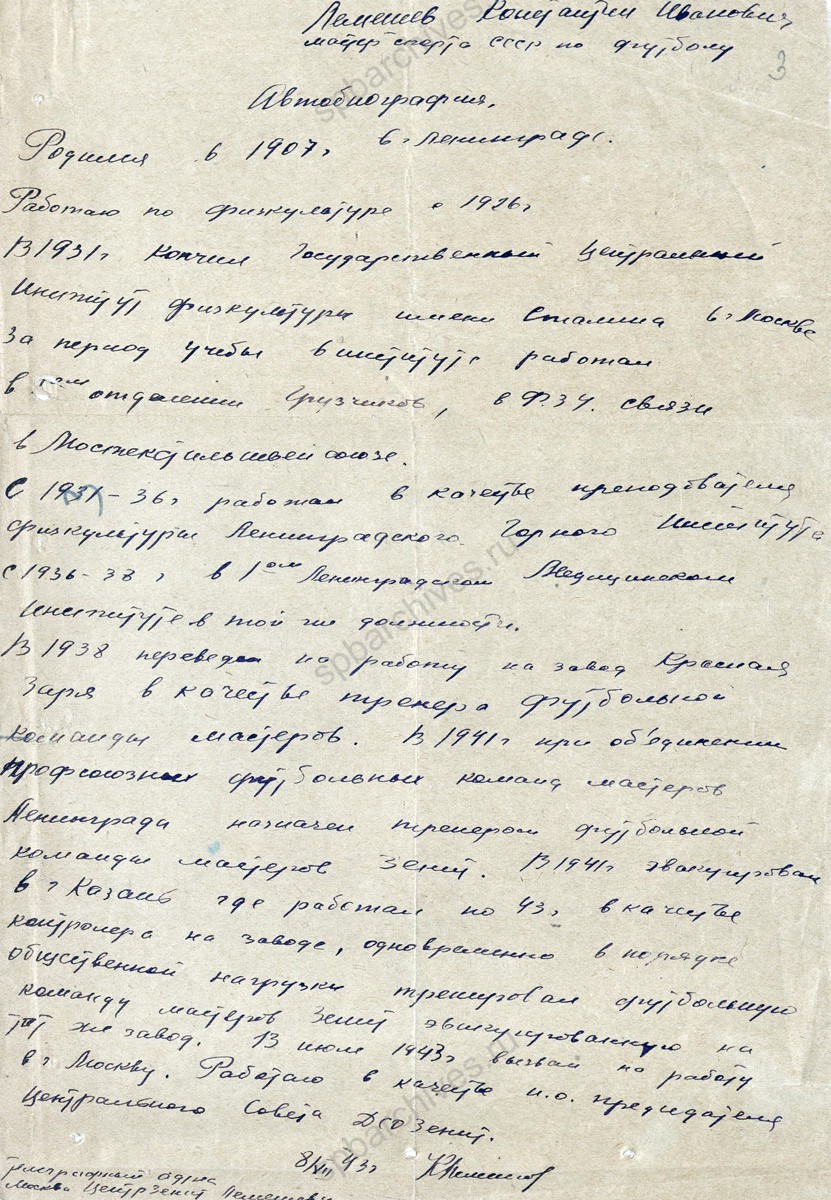 Лемешев Константин Иванович
мастер спорта СССР по футболу
3
Автобиография.
Родился в 1907г в г Ленинграде.
Работаю по физкультуре с 1926г
В 1931г кончил Государственный Центральный
Институт физкультуры имени Сталина в г Москве
За период учебы в институте работал
в отделении Грузчиков, в Ф.З.У. связи
в Мостекстильшвейсоюзе.
С 1931-36г работал в качестве преподователя
физкультуры Ленинградского Горного Института
с 1936-38г в 1ом Ленинградском Медицинском
Институте в той же должности.
В 1938 переведен на работу на завод Красная
Заря в качестве тренера футбольной
команды мастеров. В 1941г при об'единении
профсоюзных футбольных команд мастеров
Ленинграда назначен тренером футбольной
команды мастеров Зенит. В 1941г эвакуирован
в г Казань где работал по 43г в качестве
контролера на заводе, одновременно в порядке
общественной нагрузки тренировал футбольную
команду мастеров Зенит эвакуированную на
тот же завод. В июле 1943г вызван на работу
в г Москву. Работаю в качестве и.о. председателя
Центрального Совета ДСО Зенит.
8/VIII 43г КЛемешев
Телеграфный адрес
Москва ЦентрЗенит Лемешеву
spbarchives.ru
spbarchives.ru
spbarchives.ru
spbarchives.ru